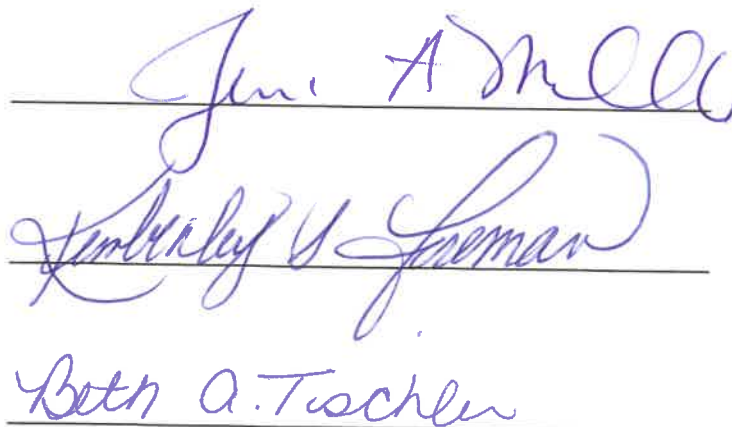 Jeni A Mill
Kimberley S Foreman
Beth A. Tischler